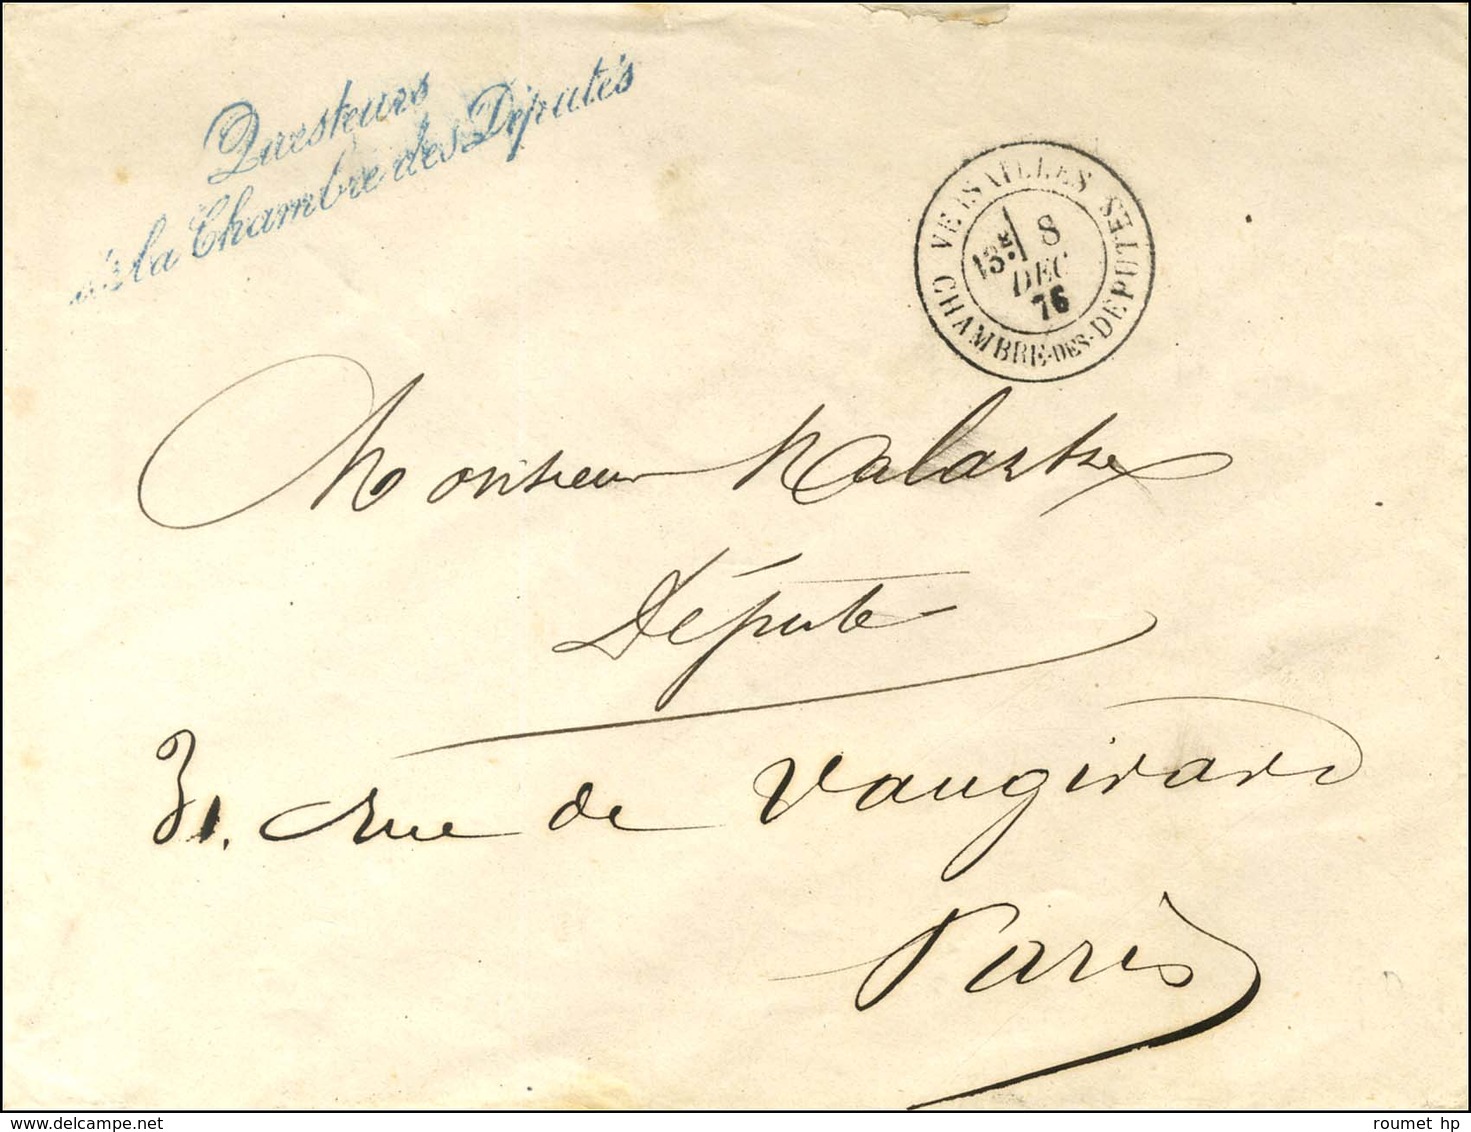 Questeurs
de la Chambre des Députés
VERSAILLES
CHAMBRE-DES-DEPUTES
8
DEC
76
Monsieur Malartre
Député
31, rue de Vaugirard
Paris
roumet hp